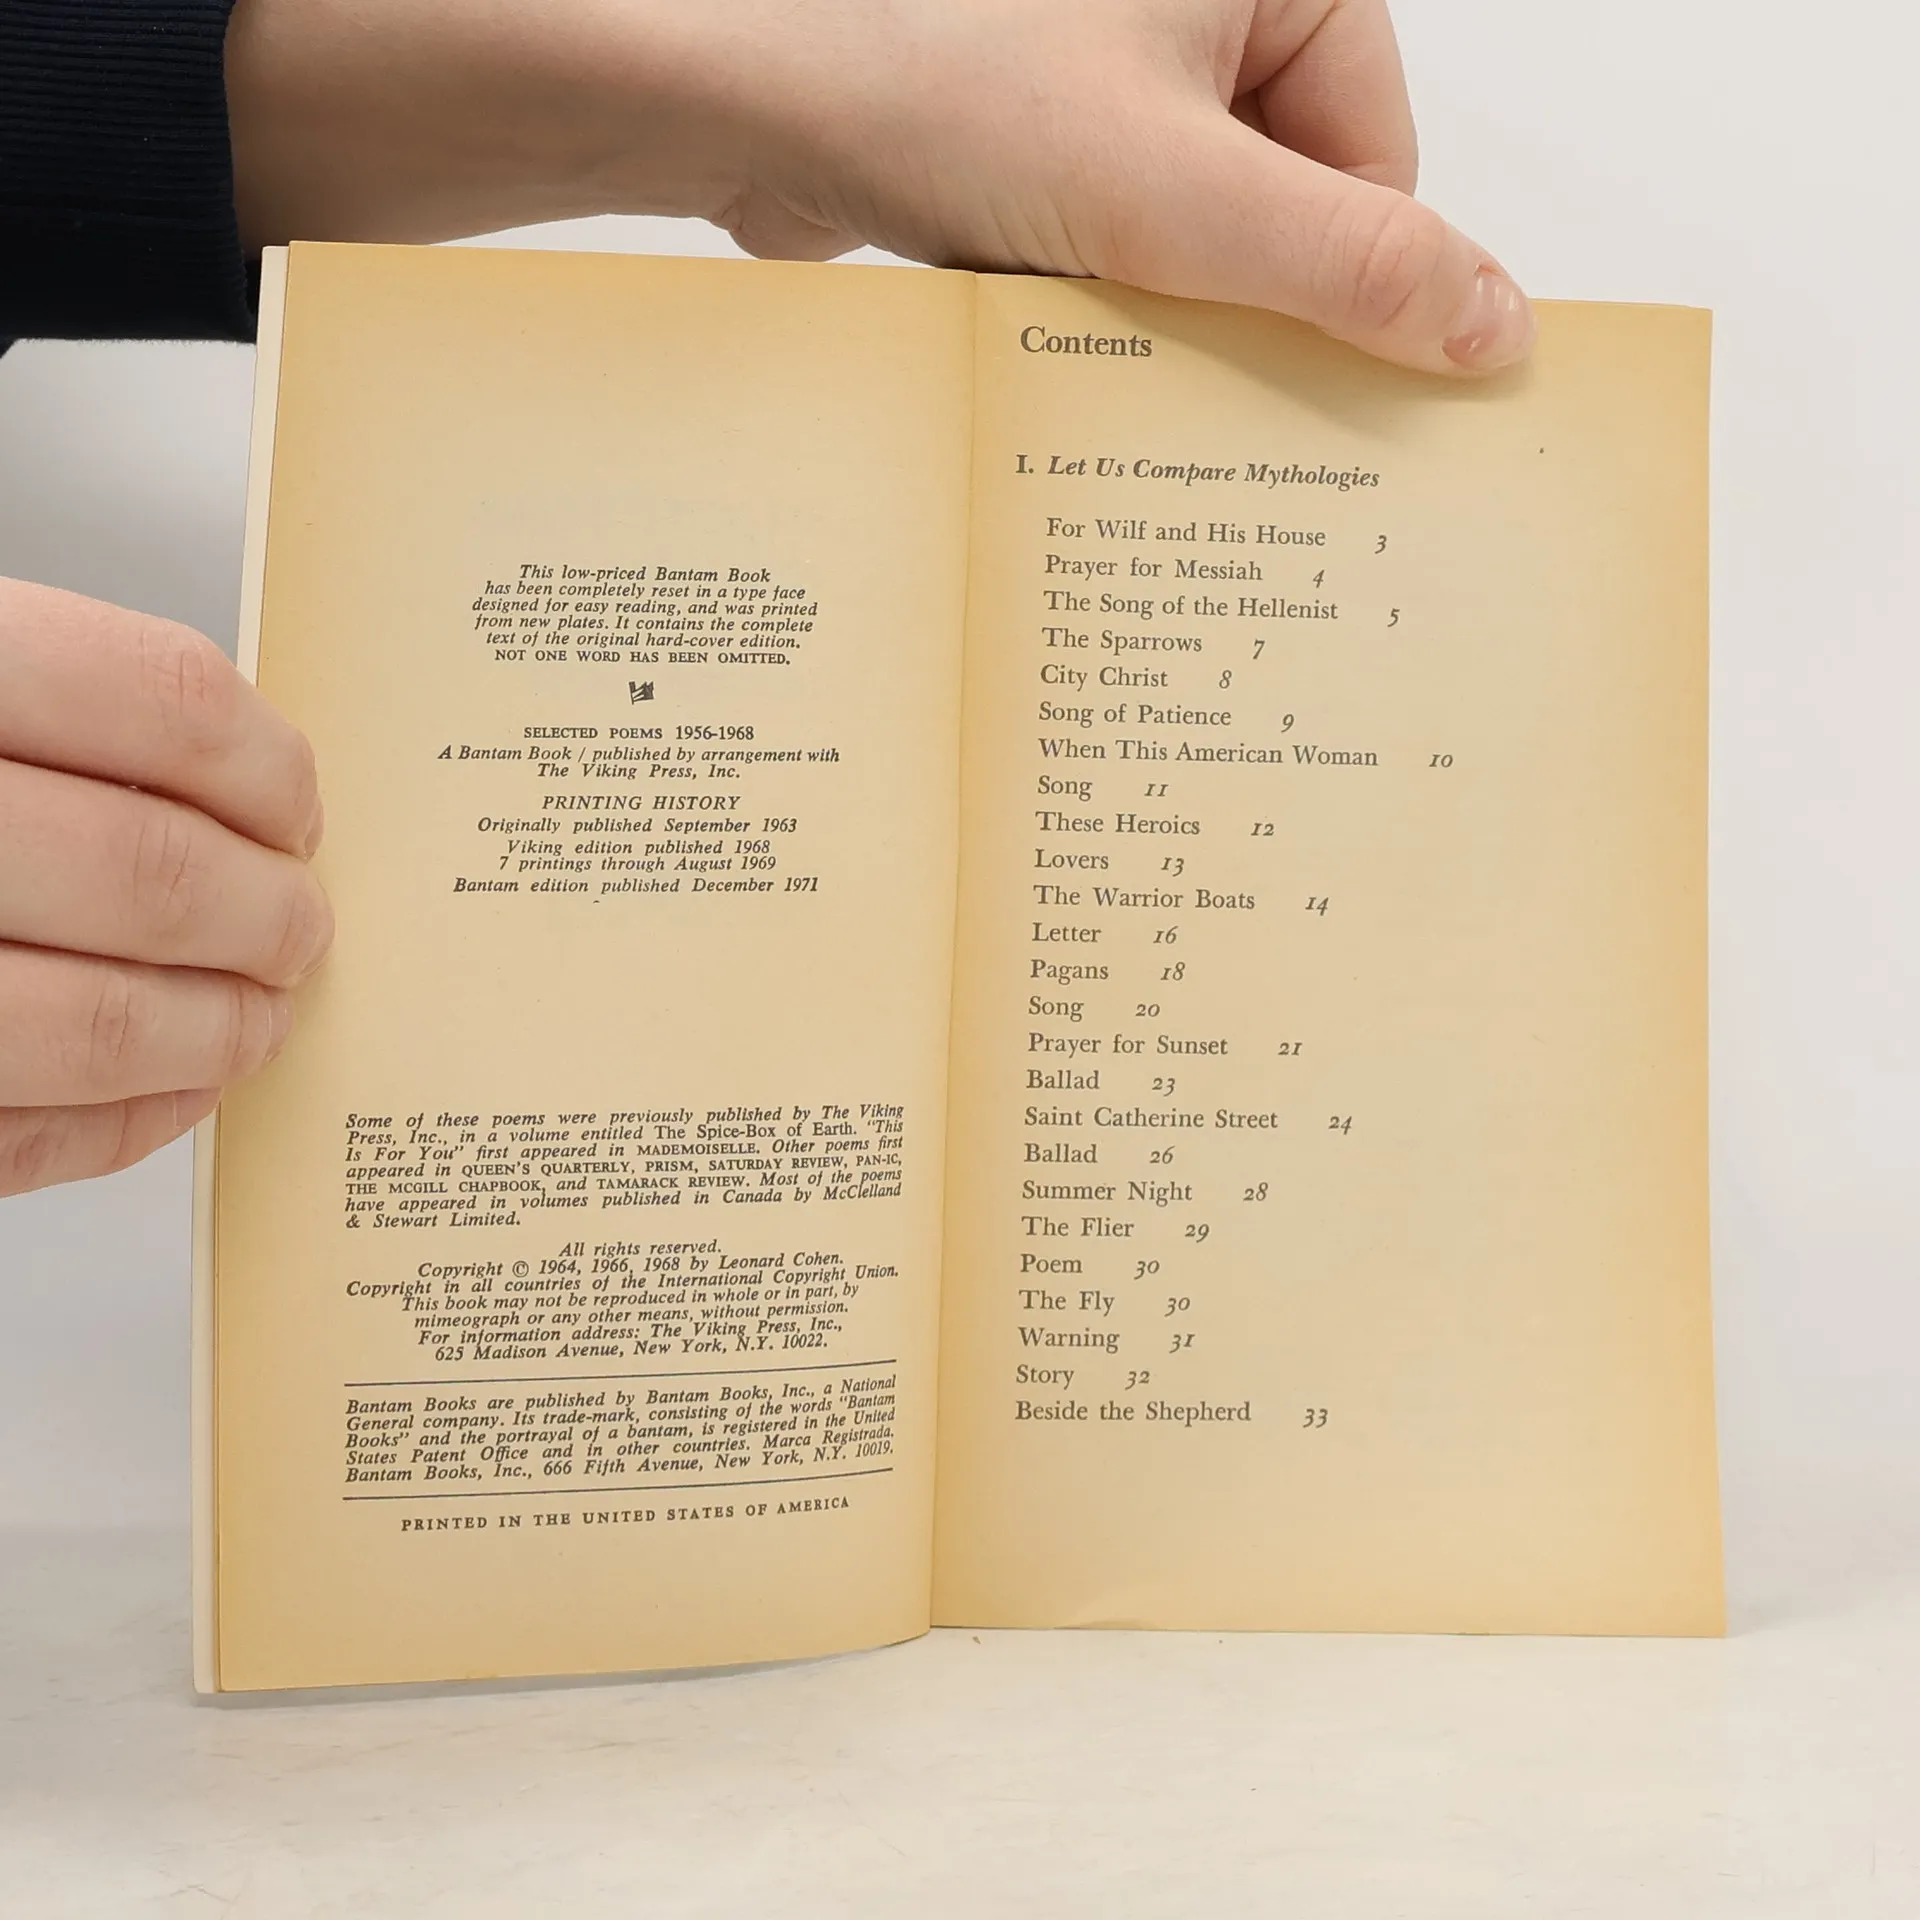 This low-priced Bantam Book
has been completely reset in a type face
designed for easy reading, and was printed
from new plates. It contains the complete
text of the original hard-cover edition.
NOT ONE WORD HAS BEEN OMITTED.
SELECTED POEMS 1956-1968
A Bantam Book / published by arrangement with
The Viking Press, Inc.
PRINTING HISTORY
Originally published September 1963
Viking edition published 1968
7 printings through August 1969
Bantam edition published December 1971
Some of these poems were previously published by The Viking
Press, Inc., in a volume entitled The Spice-Box of Earth. "This
Is For You" first appeared in MADEMOISELLE. Other poems first
appeared in QUEEN'S QUARTERLY, PRISM, SATURDAY REVIEW, PAN-IC,
THE MCGILL CHAPBOOK, and TAMARACK REVIEW. Most of the poems
have appeared in volumes published in Canada by McClelland
& Stewart Limited.
All rights reserved.
Copyright © 1964, 1966, 1968 by Leonard Cohen.
Copyright in all countries of the International Copyright Union.
This book may not be reproduced in whole or in part, by
mimeograph or any other means, without permission.
For information address: The Viking Press, Inc.,
625 Madison Avenue, New York, N.Y. 10022.
Bantam Books are published by Bantam Books, Inc., a National
General company. Its trade-mark, consisting of the words "Bantam
Books" and the portrayal of a bantam, is registered in the United
States Patent Office and in other countries. Marca Registrada.
Bantam Books, Inc., 666 Fifth Avenue, New York, N.Y. 10019.
PRINTED IN THE UNITED STATES OF AMERICA
Contents
I. Let Us Compare Mythologies
For Wilf and His House 3
Prayer for Messiah 4
The Song of the Hellenist 5
The Sparrows 7
City Christ 8
Song of Patience 9
When This American Woman 10
Song 11
These Heroics 12
Lovers 13
The Warrior Boats 14
Letter 16
Pagans 18
Song 20
Prayer for Sunset 21
Ballad 23
Saint Catherine Street 24
Ballad 26
Summer Night 28
The Flier 29
Poem 30
The Fly 30
Warning 31
Story 32
Beside the Shepherd 33